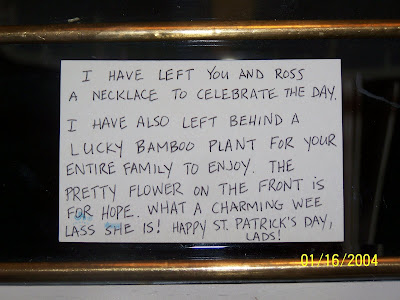 I HAVE LEFT YOU AND ROSS
A NECKLACE TO CELEBRATE THE DAY.
I HAVE ALSO LEFT BEHIND A
LUCKY BAMBOO PLANT FOR YOUR
ENTIRE FAMILY TO ENJOY. THE
PRETTY FLOWER ON THE FRONT IS
FOR HOPE. WHAT A CHARMING WEE
LASS SHE IS! HAPPY ST. PATRICK'S DAY,
LADS!
01/16/2004